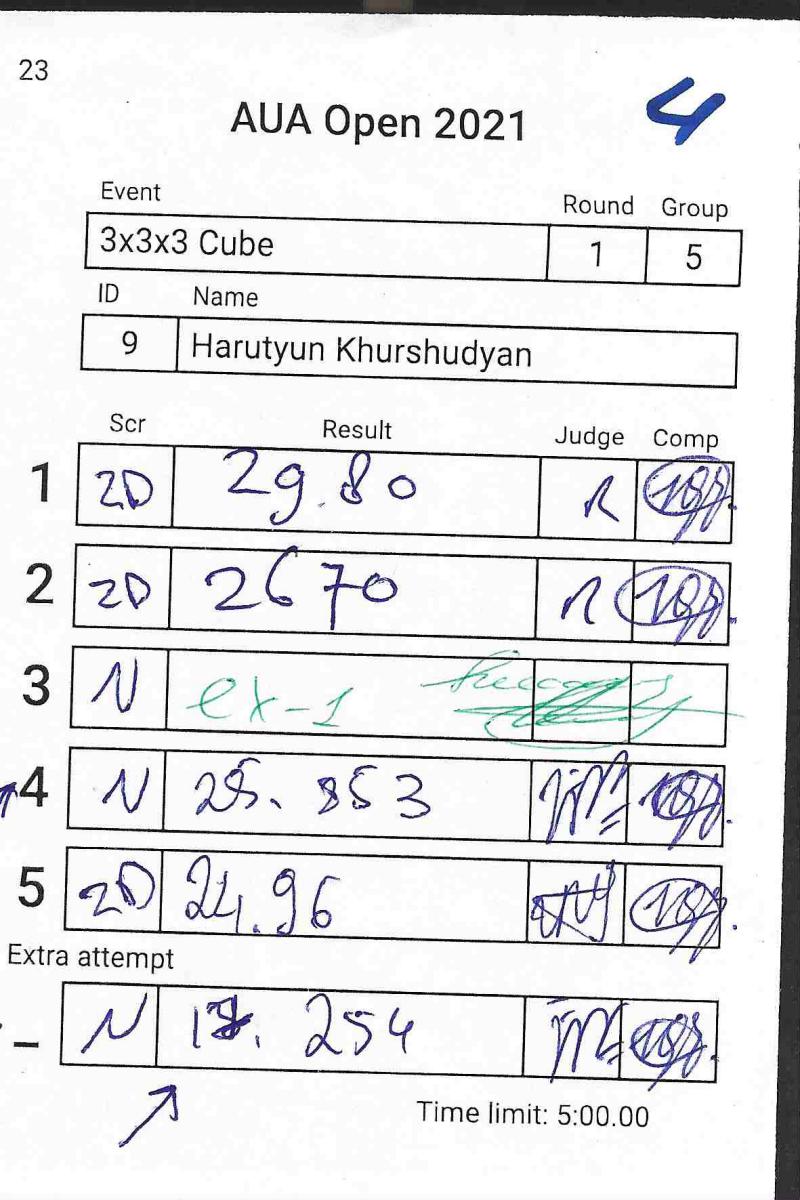 23
4
AUA Open 2021
Event Round Group
3x3x3 Cube 1 5
ID Name
9 Harutyun Khurshudyan
Scr Result Judge Comp
1 ZD 29.80
2 ZD 2670
3 N ex-1
4 N 25.853
5 ZD 24.96
Extra attempt
– N 254
Time limit: 5:00.00